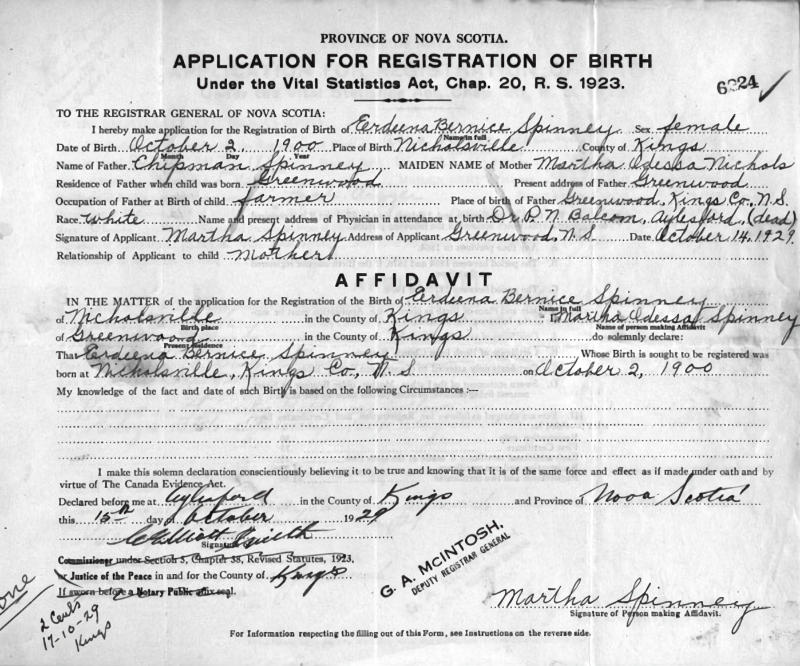 PROVINCE OF NOVA SCOTIA.
APPLICATION FOR REGISTRATION OF BIRTH
Under the Vital Statistics Act, Chap. 20, R. S. 1923.
6224 ✓
TO THE REGISTRAR GENERAL OF NOVA SCOTIA:
I hereby make application for the Registration of Birth of Erdeena Bernice Spinney Sex female
Name in full
Date of Birth October 2 1900 Place of Birth Nicholsville County of Kings
Month Day Year
Name of Father Chipman Spinney MAIDEN NAME of Mother Martha Odessa Nichols
Residence of Father when child was born Greenwood Present address of Father Greenwood
Occupation of Father at Birth of child farmer Place of birth of Father Greenwood, Kings Co., N.S.
Race White Name and present address of Physician in attendance at birth Dr. P. N. Balcom, Aylesford, (dead)
Signature of Applicant Martha Spinney Address of Applicant Greenwood, N.S. Date October 14, 1929
Relationship of Applicant to child Mother
AFFIDAVIT
IN THE MATTER of the application for the Registration of the Birth of Erdeena Bernice Spinney
Name in full
of Nicholsville in the County of Kings Martha Odessa Spinney
Birth place Name of person making Affidavit
of Greenwood in the County of Kings do solemnly declare:
Present Residence
That Erdeena Bernice Spinney Whose Birth is sought to be registered was
born at Nicholsville, Kings Co., N.S. on October 2, 1900
My knowledge of the fact and date of such Birth is based on the following Circumstances :—
I make this solemn declaration conscientiously believing it to be true and knowing that it is of the same force and effect as if made under oath and by
virtue of The Canada Evidence Act.
Declared before me at Aylesford in the County of Kings and Province of Nova Scotia
this 15th day of October 1929
Elliott Smith
Signature
Commissioner under Section 3, Chapter 38, Revised Statutes, 1923,
or Justice of the Peace in and for the County of Kings
If sworn before a Notary Public affix seal.
G. A. McINTOSH,
DEPUTY REGISTRAR GENERAL
one
2 Certs
17-10-29
Kings
Martha Spinney
Signature of Person making Affidavit.
For Information respecting the filling out of this Form, see Instructions on the reverse side.